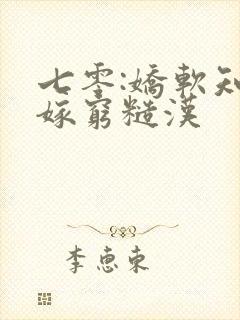 七零:嬌軟知
嫁窮糙漢
李惠東